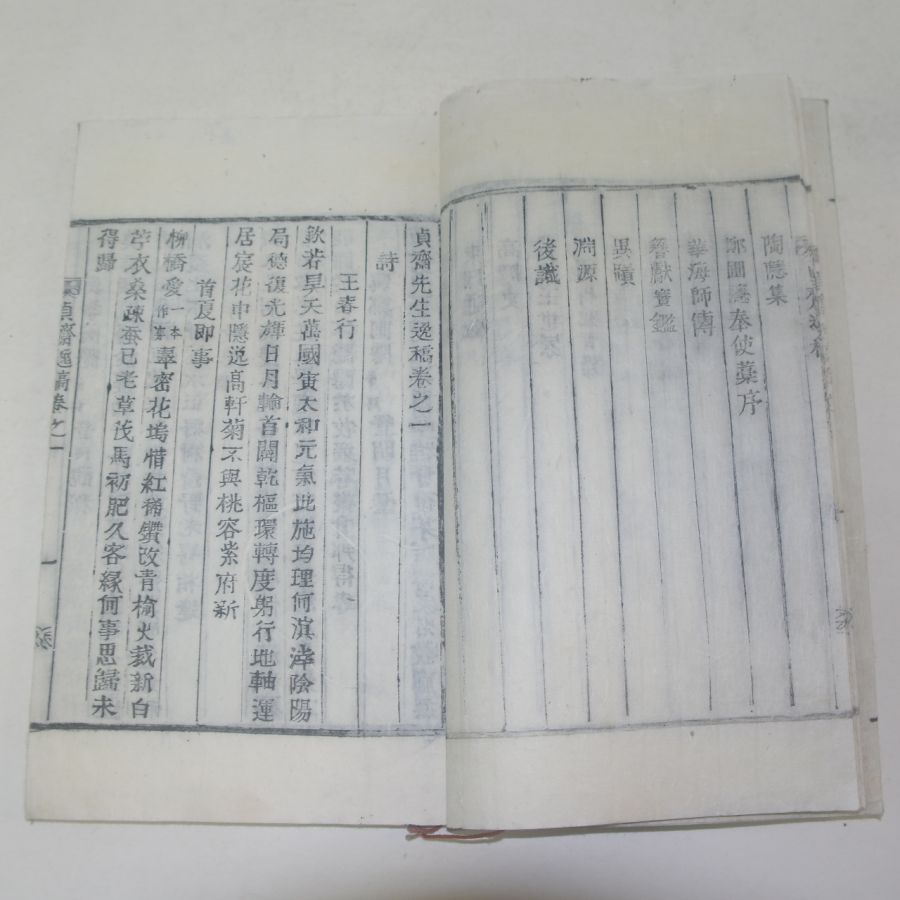 陶隱集
圃隱奉使藁序
華海師傳
麗獻寶鑑
異蹟
淵源
後識
貞齋先生逸稿卷之一
詩
王春行
欽若旱天萬國寅太和元氣此施均理何滇涬陰陽
局德復光輝日月輪首闢乾樞環轉度躬行地軸運
居宸花中隱逸高軒菊不與桃容紫府新
首夏即事
柳橋愛一本作寡葦密花塢惜紅稀鑽改青楡火裁新白
苧衣桑疎蚕已老草茂馬初肥久客緣何事思歸未
得歸
貞齋逸稿卷之一
一